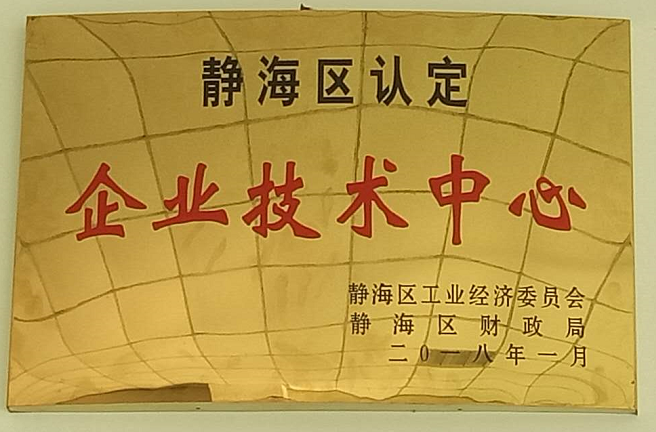 静海区认定
企业技术中心
静海区工业经济委员会
静海区财政局
二〇一八年一月